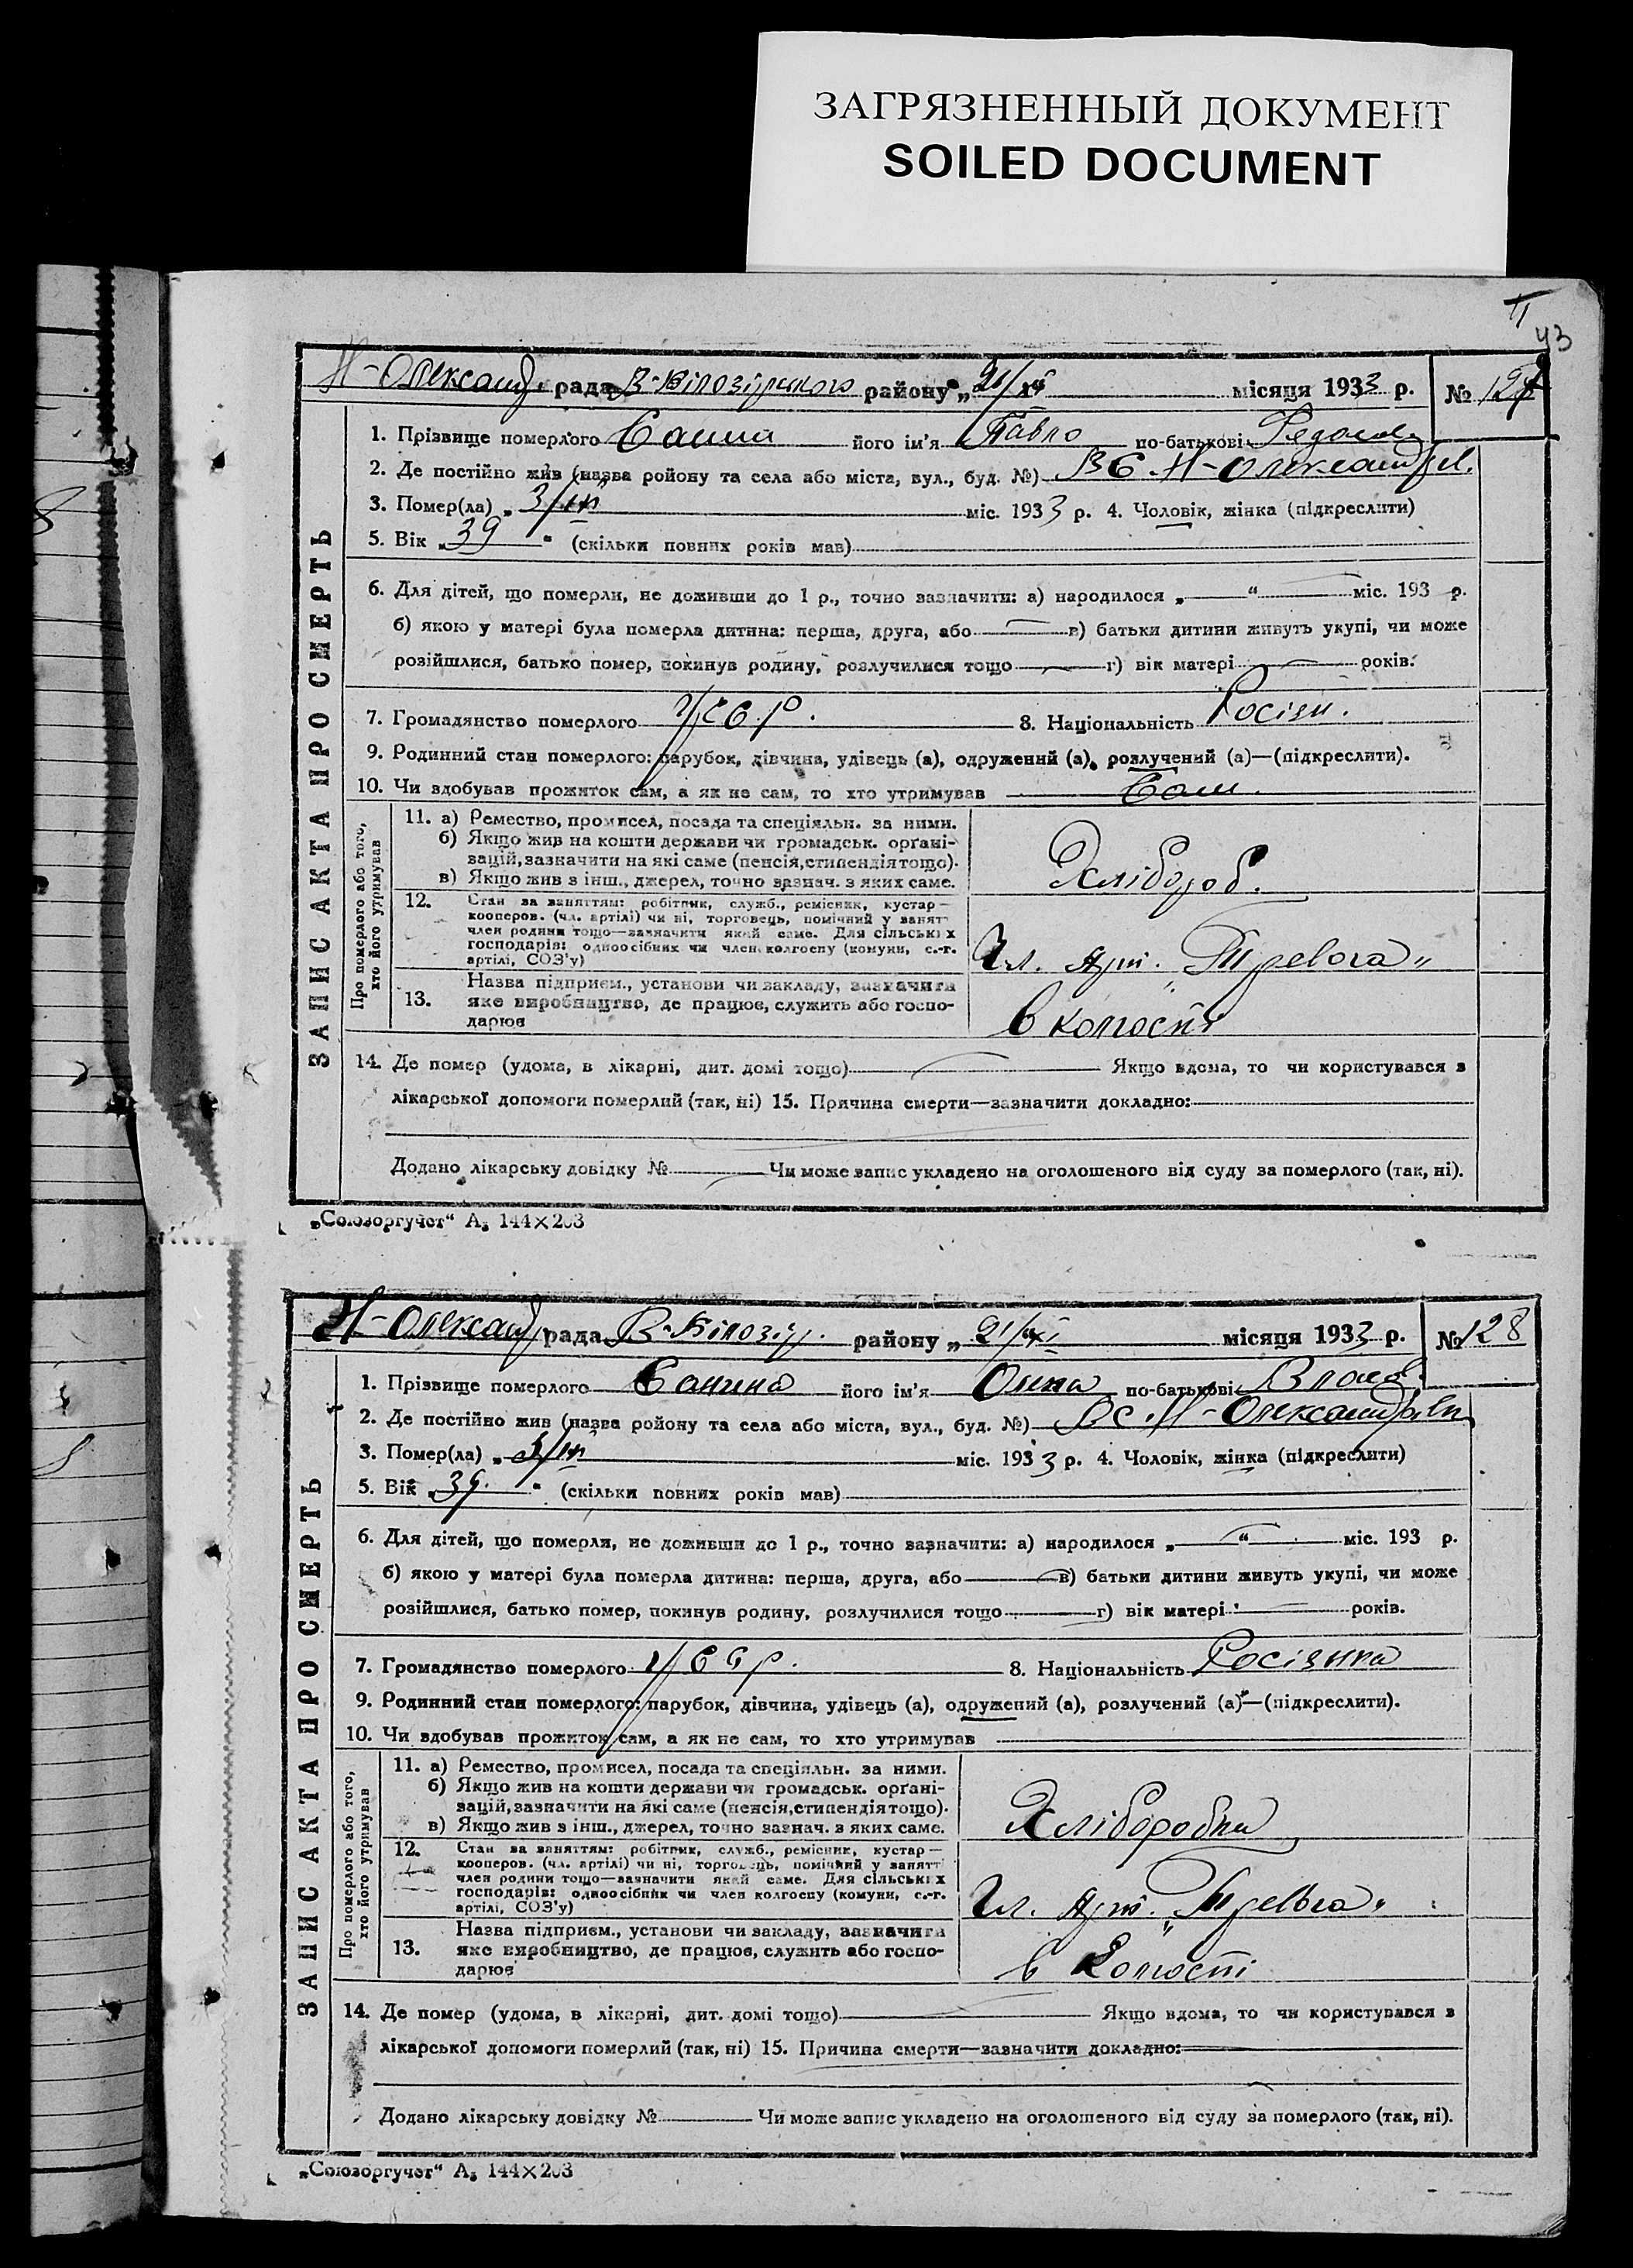 ЗАГРЯЗНЕННЫЙ ДОКУМЕНТ
SOILED DOCUMENT
43
Н-Олександр. рада В-Білозірського району „21/XI місяця 1933 р. № 127
ЗАПИС АКТА ПРО СМЕРТЬ
1. Прізвище померлого його ім'я Павло по-батькові
2. Де постійно жив (назва ройону та села або міста, вул., буд. №) Н-Олександрів.
3. Помер(ла) „ 3/ міс. 1933 р. 4. Чоловік, жінка (підкреслити)
5. Вік „39" (скільки повних років мав)
6. Для дітей, що померли, не доживши до 1 р., точно зазначити: а) народилося „ “ міс. 193 р.
б) якою у матері була померла дитина: перша, друга, або в) батьки дитини живуть укупі, чи може
розійшлися, батько помер, покинув родину, розлучилися тощо г) вік матері років.
7. Громадянство померлого УССР. 8. Національність Росіян.
9. Родинний стан померлого: парубок, дівчина, удівець (а), одружений (а), розлучений (а)—(підкреслити).
10. Чи здобував прожиток сам, а як не сам, то хто утримував Сам.
Про померлого або того, хто його утримував
11. а) Ремество, промисел, посада та спеціяльн. за ними.
б) Якщо жив на кошти держави чи громадськ. орґані-
зацій, зазначити на які саме (пенсія, стипендія тощо).
в) Якщо жив з інш., джерел, точно зазнач. з яких саме.
Хлібороб.
12. Стан за заняттям: робітник, служб., ремісник, кустар—
кооперов. (чл. артілі) чи ні, торговець, помічний у занятт
член родини тощо—зазначити який саме. Для сільських
господарів: одноосібник чи член колгоспу (комуни, с.-г.
артілі, СОЗ'у)
Чл. Арт. „Тревога“
13. Назва підприєм., установи чи закладу, зазначити
яке виробництво, де працює, служить або госпо-
дарює
в колгоспі
14. Де помер (удома, в лікарні, дит. домі тощо) Якщо вдома, то чи користувався з
лікарської допомоги померлий (так, ні) 15. Причина смерти—зазначити докладно:
Додано лікарську довідку № Чи може запис укладено на оголошеного від суду за померлого (так, ні).
„Союзоргучет“ А₅ 144×203
Н-Олександр рада В-Білозір. району „21/XI місяця 1933 р. № 128
ЗАПИС АКТА ПРО СМЕРТЬ
1. Прізвище померлого Саніна його ім'я Онна по-батькові Влас.
2. Де постійно жив (назва ройону та села або міста, вул., буд. №) Н-Олександрівн
3. Помер(ла) „ міс. 1933 р. 4. Чоловік, жінка (підкреслити)
5. Вік „39." (скільки повних років мав)
6. Для дітей, що померли, не доживши до 1 р., точно зазначити: а) народилося „ “ міс. 193 р.
б) якою у матері була померла дитина: перша, друга, або в) батьки дитини живуть укупі, чи може
розійшлися, батько помер, покинув родину, розлучилися тощо г) вік матері років.
7. Громадянство померлого УССР. 8. Національність Росіянка
9. Родинний стан померлого: парубок, дівчина, удівець (а), одружений (а), розлучений (а)—(підкреслити).
10. Чи здобував прожиток сам, а як не сам, то хто утримував
Про померлого або того, хто його утримував
11. а) Ремество, промисел, посада та спеціяльн. за ними.
б) Якщо жив на кошти держави чи громадськ. орґані-
зацій, зазначити на які саме (пенсія, стипендія тощо).
в) Якщо жив з інш., джерел, точно зазнач. з яких саме.
Хліборобка
12. Стан за заняттям: робітник, служб., ремісник, кустар—
кооперов. (чл. артілі) чи ні, торговець, помічний у занятт
член родини тощо—зазначити який саме. Для сільських
господарів: одноосібник чи член колгоспу (комуни, с.-г.
артілі, СОЗ'у)
Чл. Арт. „Тревога“
13. Назва підприєм., установи чи закладу, зазначити
яке виробництво, де працює, служить або госпо-
дарює
в Колгоспі
14. Де помер (удома, в лікарні, дит. домі тощо) Якщо вдома, то чи користувався з
лікарської допомоги померлий (так, ні) 15. Причина смерти—зазначити докладно:
Додано лікарську довідку № Чи може запис укладено на оголошеного від суду за померлого (так, ні).
„Союзоргучет“ А₅ 144×203